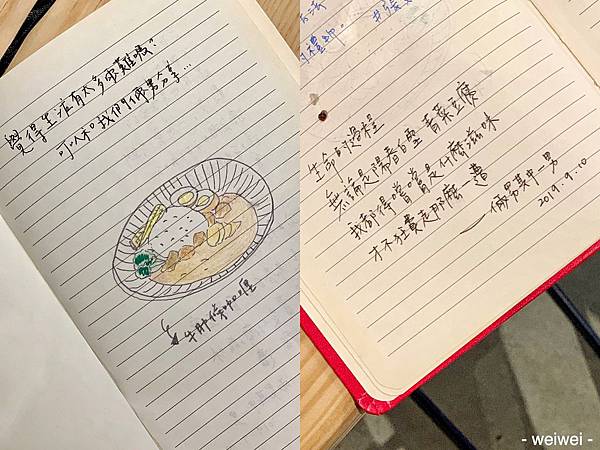 覺得生活有太多兩難嗎?
可以和我們倆男分享...
牛肋條咖哩
生命的過程
無論是陽春白雪 青菜豆腐
我都得嚐嚐是什麼滋味
才不枉費走那麼一遭
—倆男其中一男
2019.9.10
- weiwei -